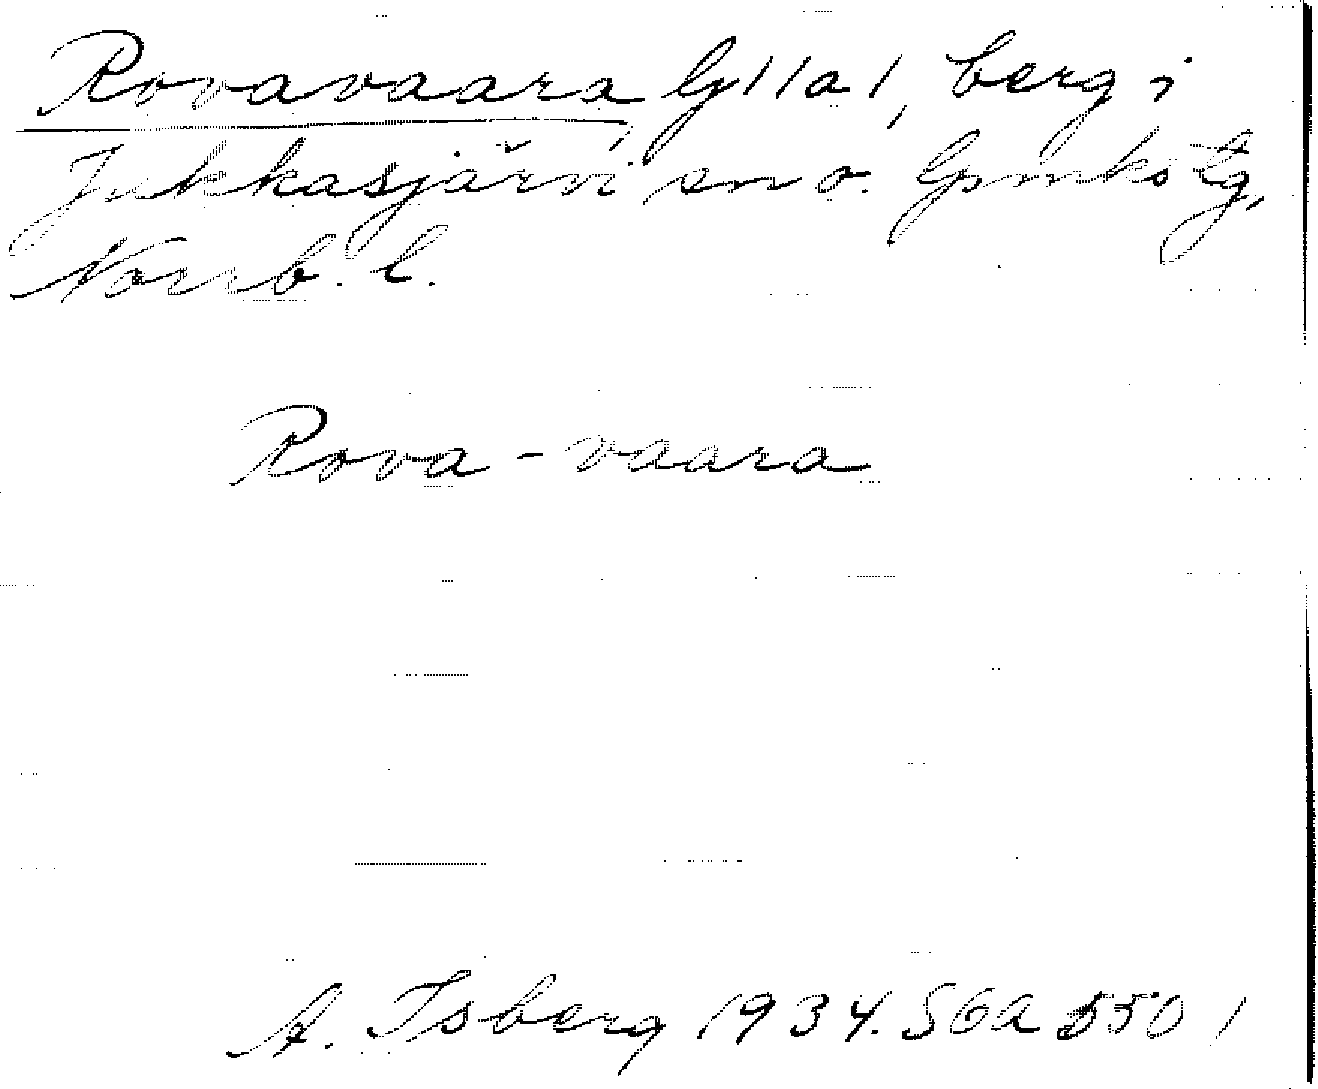 Rovavaara, G11a1, berg i
Jukkasjärvi sn o. lpmks tg,
Norrb. l.
Rova-vaara
A. Isberg 1934. SGA 5501